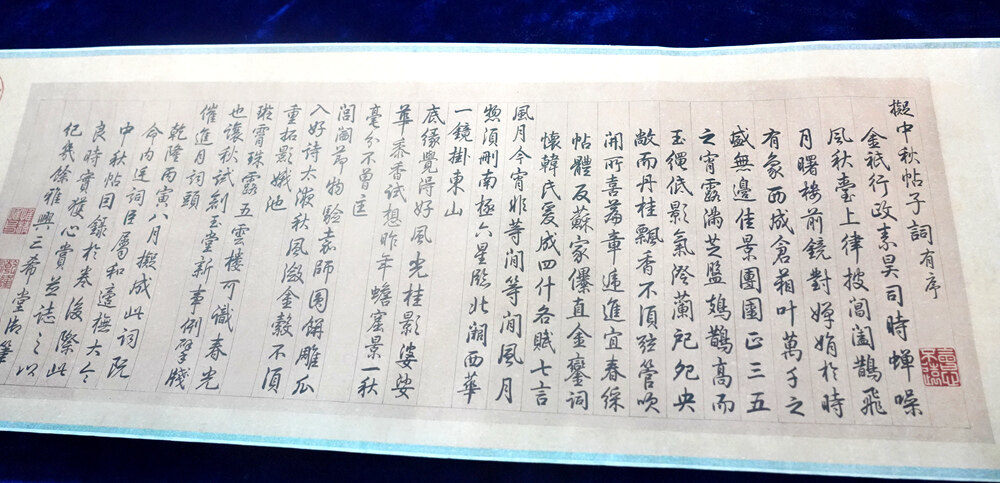 擬中秋帖子詞有序
金祇行政素昊司時蟬噪
風秋臺上律披閶闔鵲飛
月曙樓前鏡對嬋娟於時
有象而成倉箱叶萬子之
盛無邊佳景團團正三五
之宵露滿芝盤鳷鵲高而
玉繩低影氣澄蘭戺央
敞而丹桂飄香不須弦管吹
開所喜篇章遞進宜春綵
帖體反蘇家儤直金鑾詞
懷韓氏爰成四什各賦七言
風月今宵非等閒等閒風月
惣須刪南極六星臨北湖西華
一鏡掛東山
底緣覺得好風光桂影婆娑
華黍香試想昨年蟾窟景一秋
毫分不曾
閭閻節物驗袁師團餅雕瓜
入好詩太液秋風澂金縠不須
重拓影娥池
琱霄珠露五雲樓可識春光
也讓秋試劄玉堂新事例擘牋
催進月詞頭
乾隆丙寅八月擬成此詞既
命內廷詞臣屬和邊撫大令
中秋帖目錄於卷後際此
良時實獲心賞並誌之以
紀幾餘雅興三希堂御筆